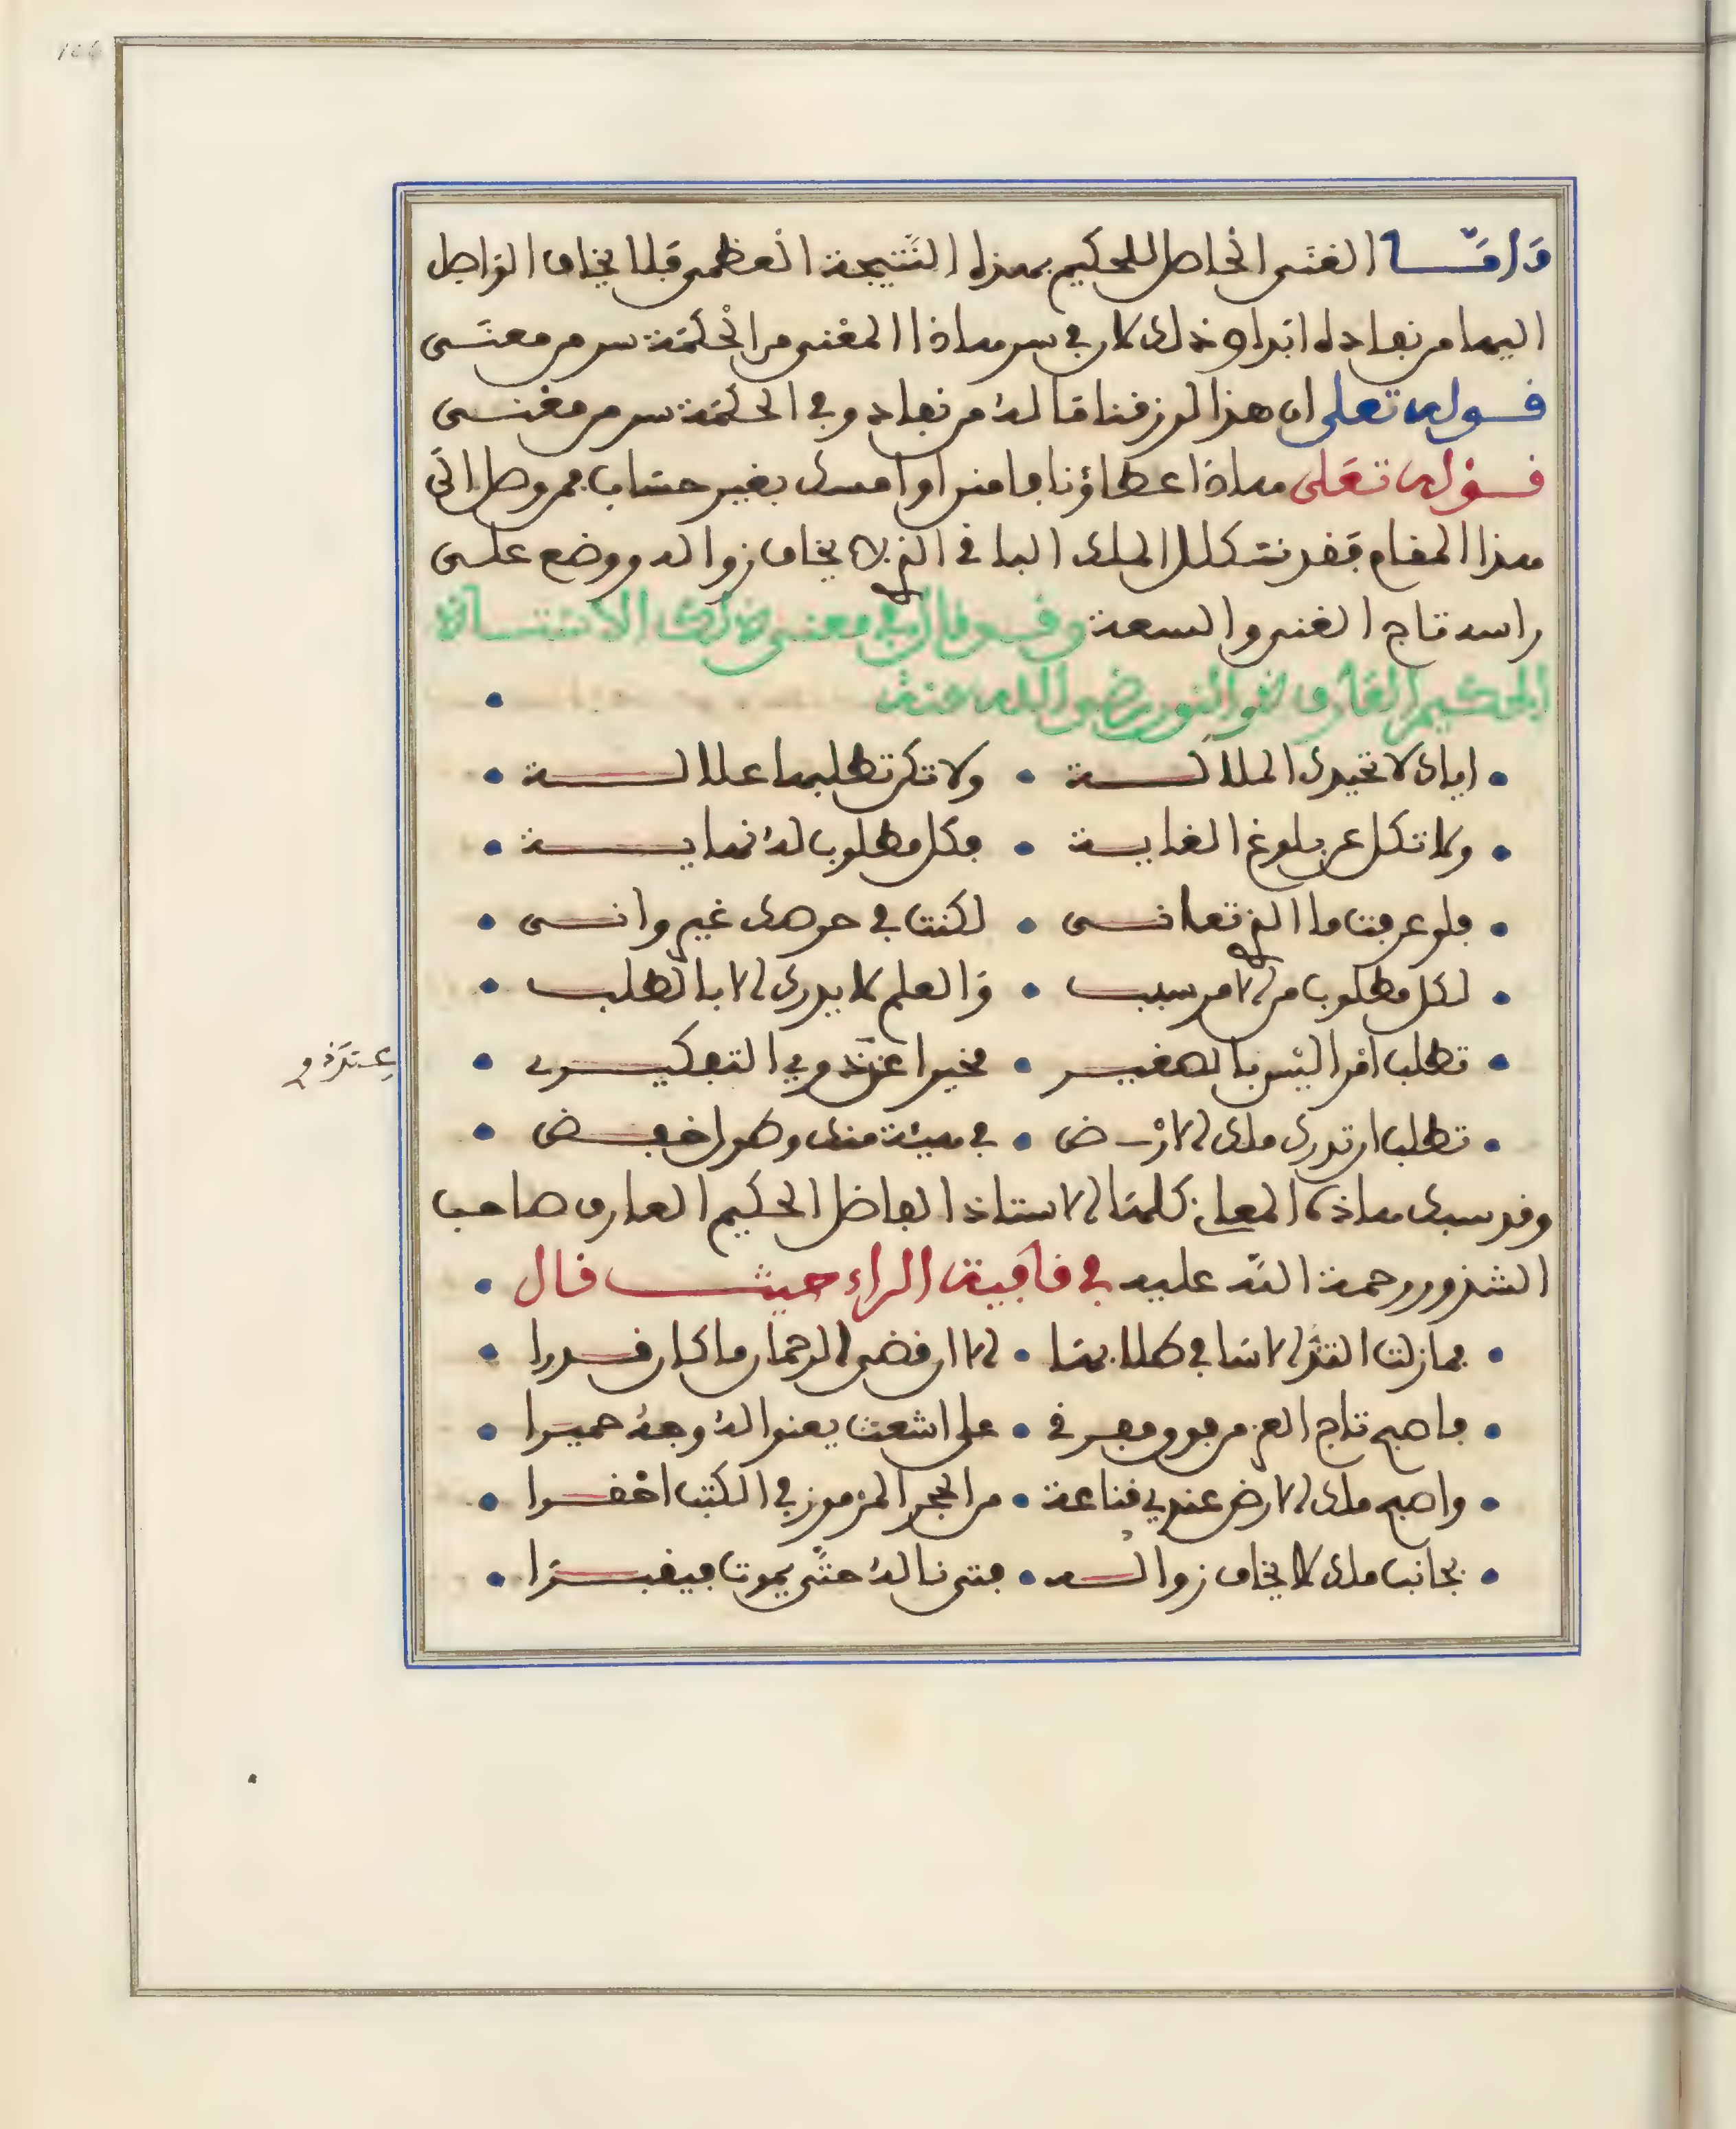 وَأمَّا الغنَى الحاصل للحكيم بهذه النَّتيجة العظمى فلا يخاف الواصل
اليها من نفاده ابدا وذلك لان في سر هاذا المغنى من الحكمة سر من معنى
قوله تعلى ان هذا لرزقنا ما له من نفاد وفي الحكمة سر من مغنى
قوله تعلى هاذا عطاؤنا فامنن او امسك بغير حساب فمن وصل الى
هذا المقام فقد تكلل الملك الباقي الذي لا يخاف زواله ووضع على
راسه تاج الغنى والسعة وقد قال في معنى ذلك الاستاذ
الحكيم العارف ذو النون رضي الله عنه
اياك لا تحيدك الملالة • ولا تكن تطلبها علالة
ولا تكل عن بلوغ الغاية • فكل مطلوب له نهاية
فلو عرفت ما الذي تعانى • لكنت في حرصك غير وانى
لكل مطلوب من الامر سبب • والعلم لا يدرى الا بالطلب
تطلب امرا ليس بالصغير • فخيرا عَنَّدوفي التفكير
تطلب ان تدرى ملك الارض • في هيئة منك وطول خفض
وقد سبك هاذه المعاني كلها الاستاذ الفاضل الحكيم العارف صاحب
الشذور رحمة الله عليه في قافية الراء حيث قال
فما زلت القى الاسا في كلابها • الا ان قضى الرحمان ما كان قدرا
فاصبح تاج العز من فوق مفرقي • على اشعث يعنوا له وجه حميرا
واصبح ملك الارض عندي قناعة • من الحجر المرموز في الكتب احقرا
بجانب ملك لا يخاف زواله • فتى ناله حتَّى يموت فيقبرا